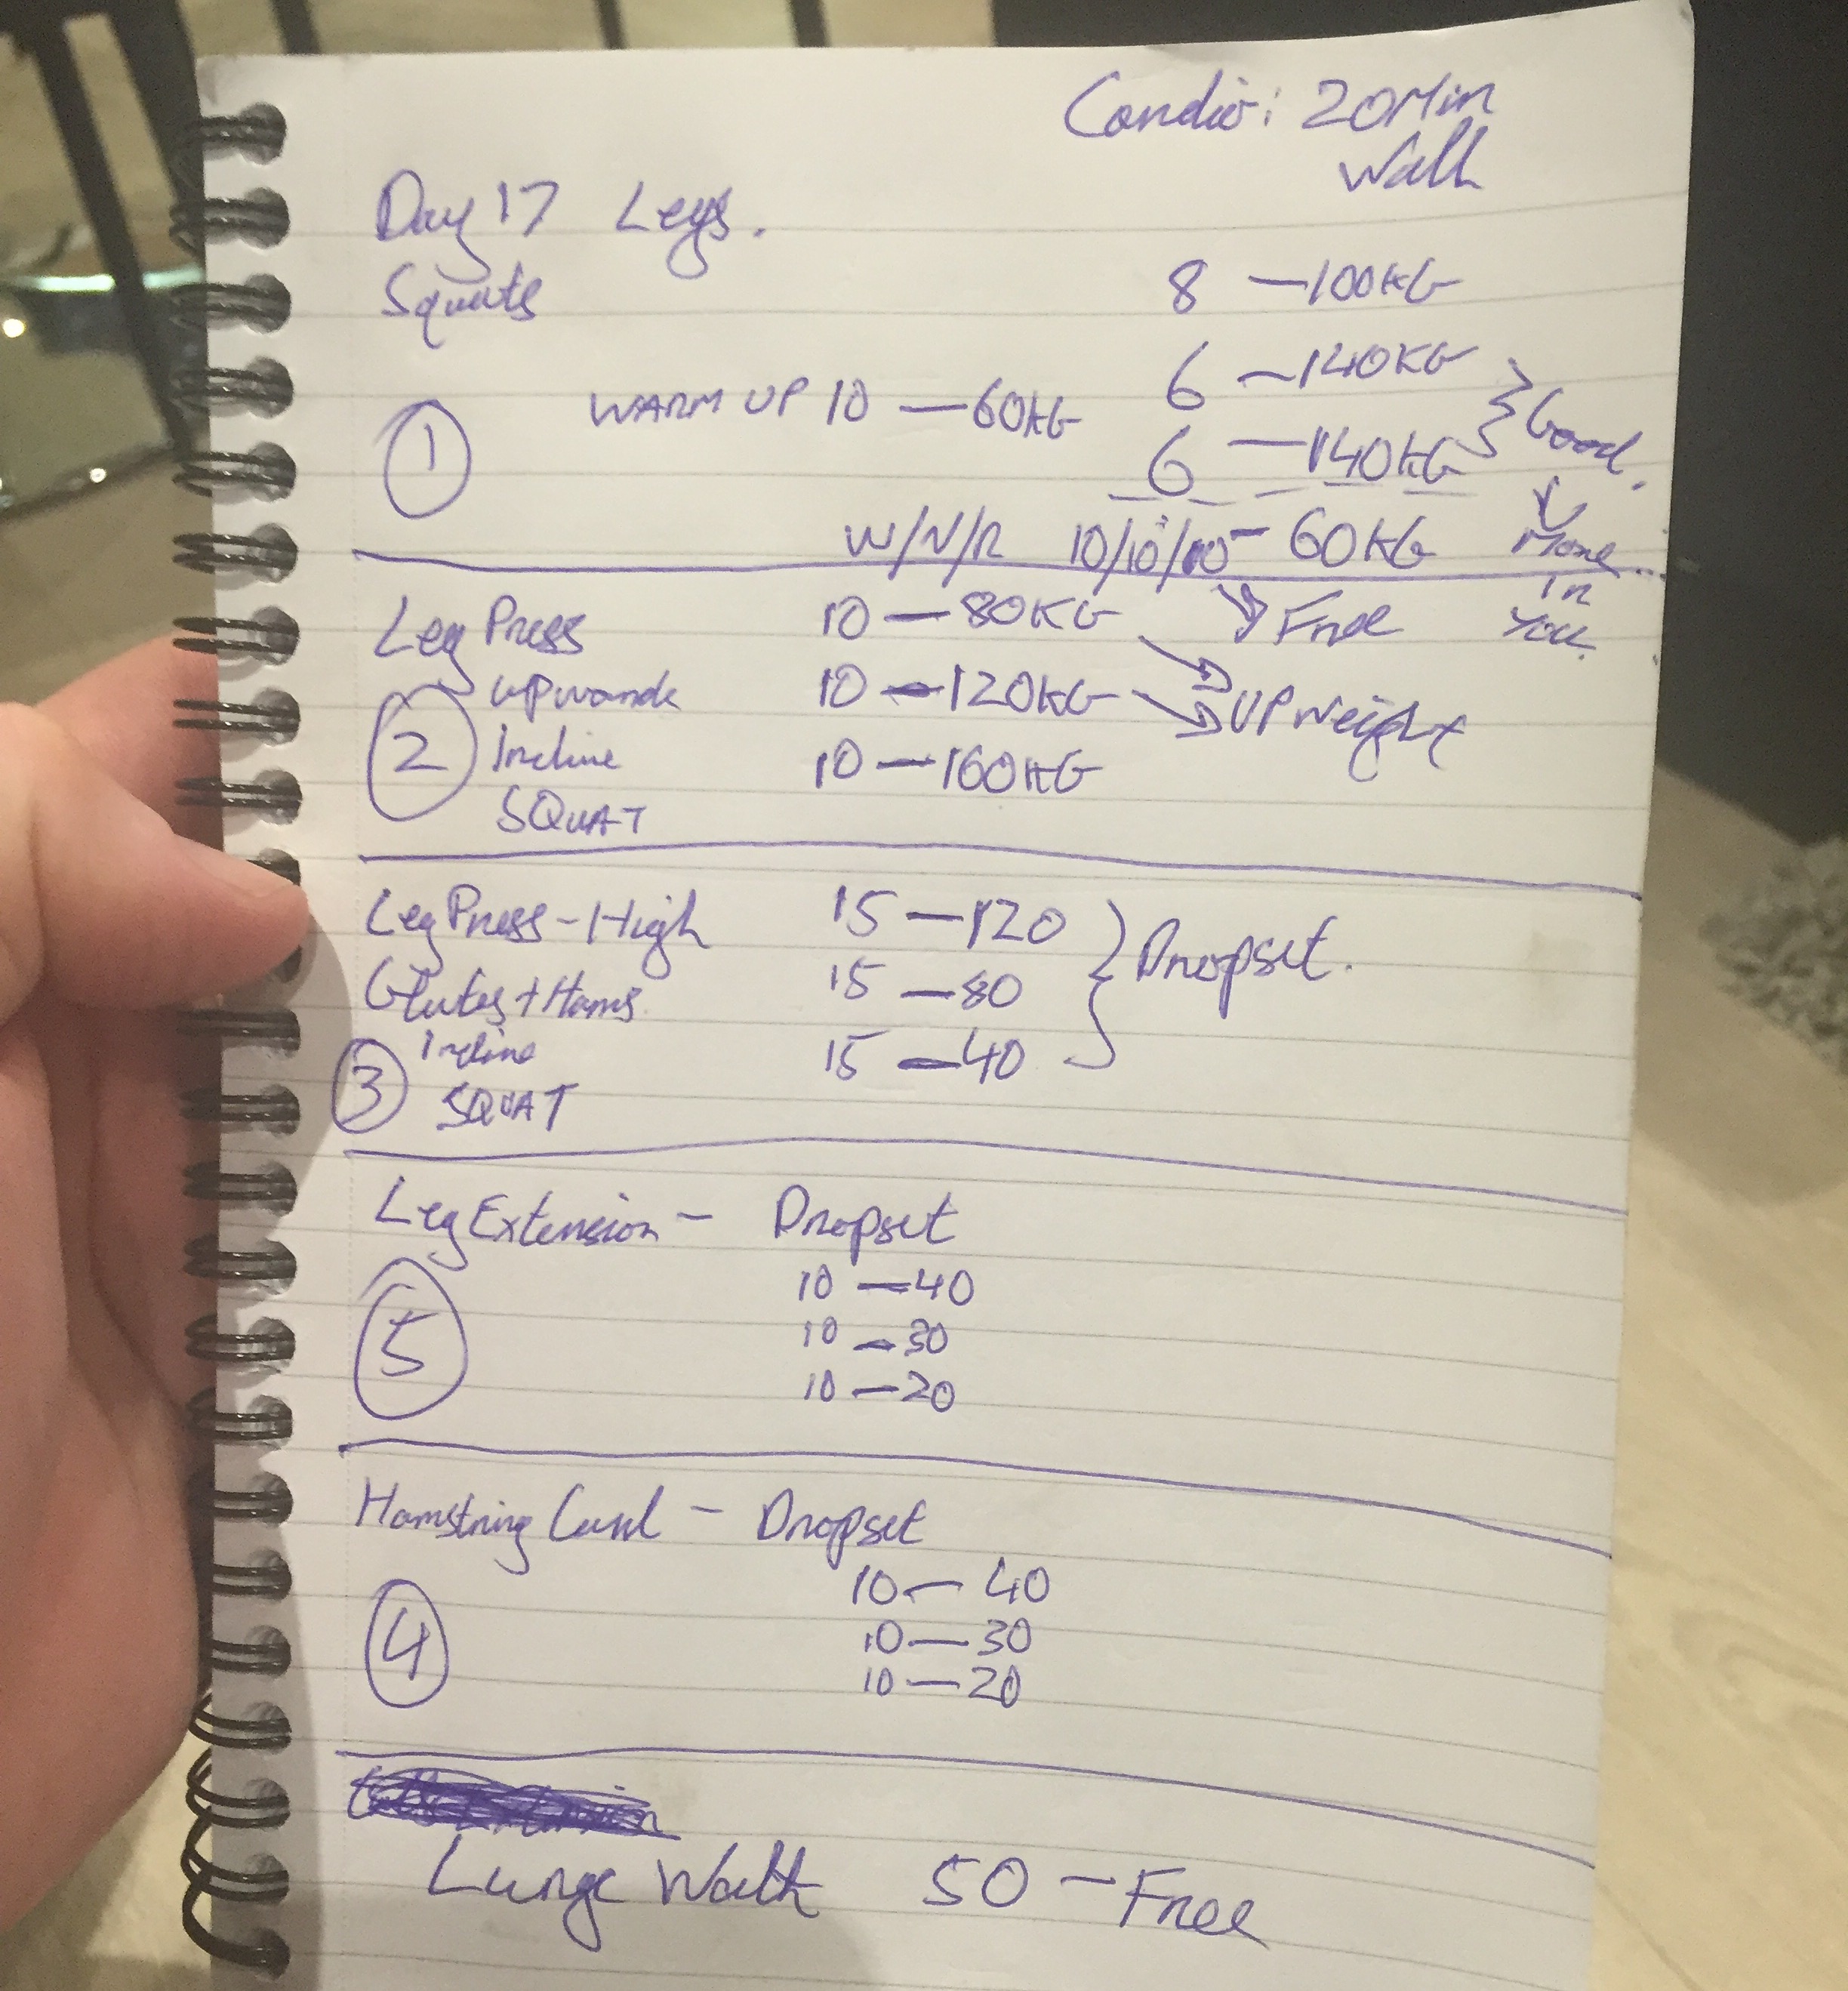 Cardio: 20Min
Walk
Day 17 Legs.
Squats
8 — 100KG
6 — 140KG
WARM UP 10 — 60KG
1
6 — 140KG
Good.
W/N/R 10/10/10 - 60KG
More
in
You.
Leg Press
10 — 80KG
Free
upwards
10 — 120KG
UP Weight
2
Incline
10 — 160KG
SQUAT
Leg Press - High
15 — 120
Dropset.
Glutes + Hams
15 — 80
Incline
15 — 40
3
SQUAT
Leg Extension - Dropset
10 — 40
5
10 — 30
10 — 20
Hamstring Curl - Dropset
10 — 40
4
10 — 30
10 — 20
Lunge Walk 50 - Free